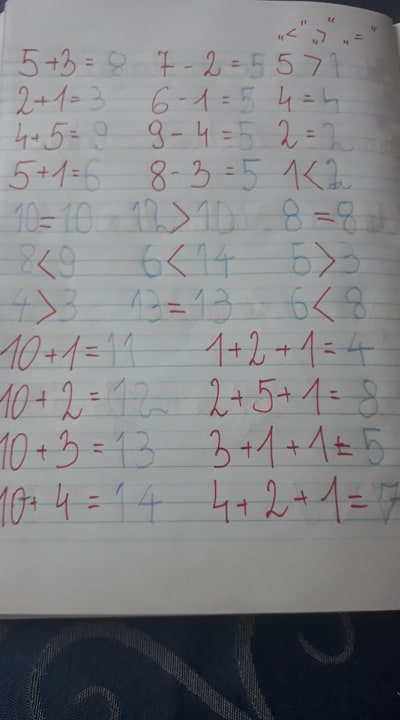 „<“ „>“ „=“
5+3=8 7-2=5 5>1
2+1=3 6-1=5 4=4
4+5=9 9-4=5 2=2
5+1=6 8-3=5 1<2
10=10 12>10 8=8
8<9 6<14 5>3
4>3 13=13 6<8
10+1=11 1+2+1=4
10+2=12 2+5+1=8
10+3=13 3+1+1=5
10+4=14 4+2+1=7